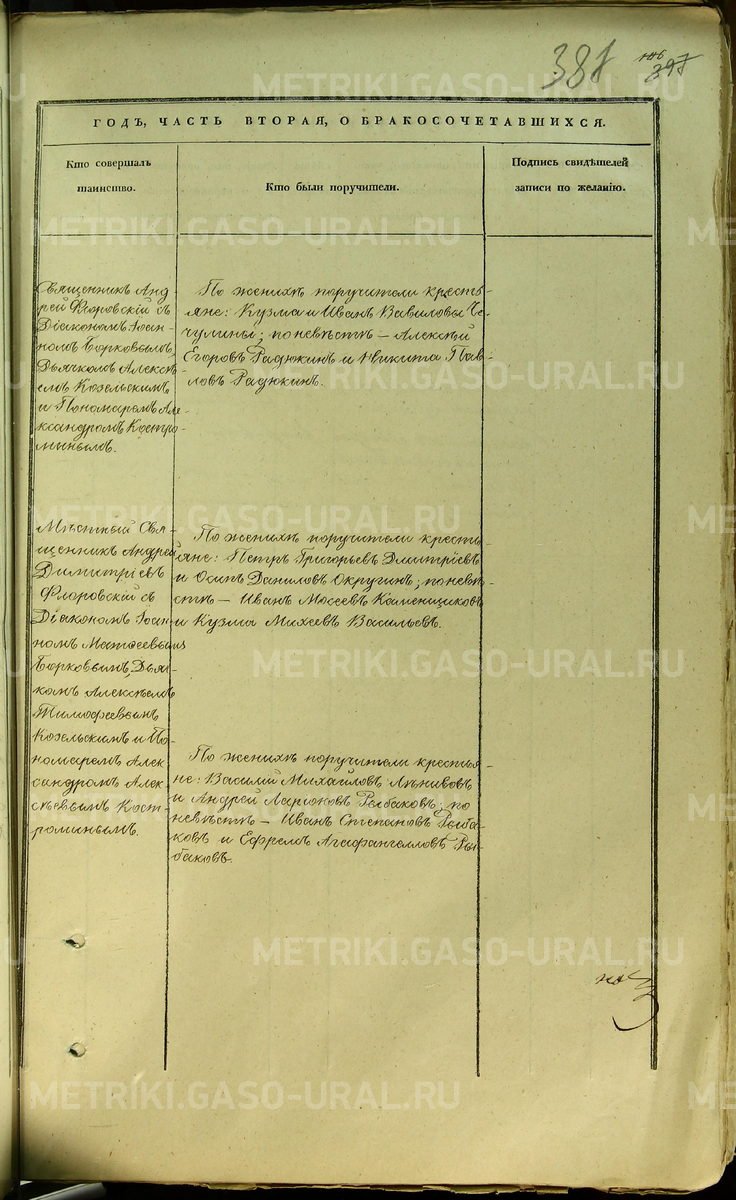 381
106
397
ГОДЪ, ЧАСТЬ ВТОРАЯ, О БРАКОСОЧЕТАВШИХСЯ.
Кто совершалъ
таинство.
Кто были поручители.
Подпись свидѣтелей
записи по желанію.
Священникъ Анд-
рей Флоровскій съ
Діакономъ Іоан-
номъ Борковымъ,
Дьячкомъ Алексѣ-
емъ Козельскимъ
и Пономаремъ Але-
ксандромъ Костро-
минымъ.
По женихѣ поручители кресть-
яне: Кузма и Иванъ Вавиловы Че-
чулины; по невѣстѣ — Алексѣй
Егоровъ Радюкинъ и Никита Пав-
ловъ Радюкинъ.
Мѣстный Свя-
щенникъ Андрей
Димитріевъ
Флоровскій съ
Діакономъ Іоан-
номъ Матѳеевымъ
Борковымъ, Дьяч-
комъ Алексѣемъ
Тимофеевымъ
Козельскимъ и По-
номаремъ Алек-
сандромъ Алек-
сѣевымъ Кост-
роминымъ.
По женихѣ поручители кресть-
яне: Петръ Григорьевъ Дмитріевъ
и Осипъ Даниловъ Округинъ; по невѣ-
стѣ — Иванъ Мосеевъ Каменщиковъ
и Кузма Михеевъ Васильевъ.
По женихѣ поручители крестья-
не: Василій Михайловъ Лѣнивовъ
и Андрей Ларіоновъ Рыбаковъ; по
невѣстѣ — Иванъ Степановъ Рыба-
ковъ и Ефремъ Агафангеловъ Ры-
баковъ.
METRIKI.GASO-URAL.RU